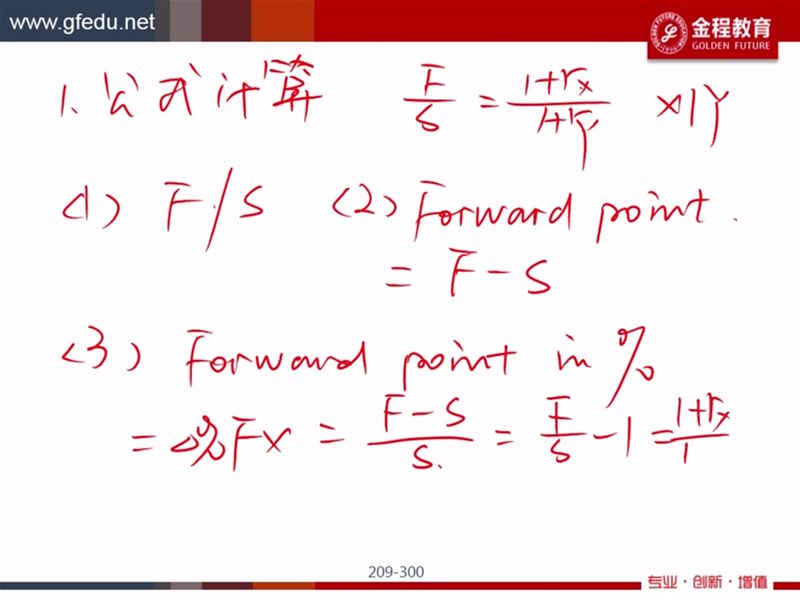 www.gfedu.net
金程教育
GOLDEN FUTURE
1. 公式计算 F/S = (1+rx)/(1+ry) X/Y
(1) F/S (2) Forward point.
= F-S
(3) Forward point in %
= %FX = (F-S)/S. = F/S -1 = (1+rx)/1
209-300
专业·创新·增值